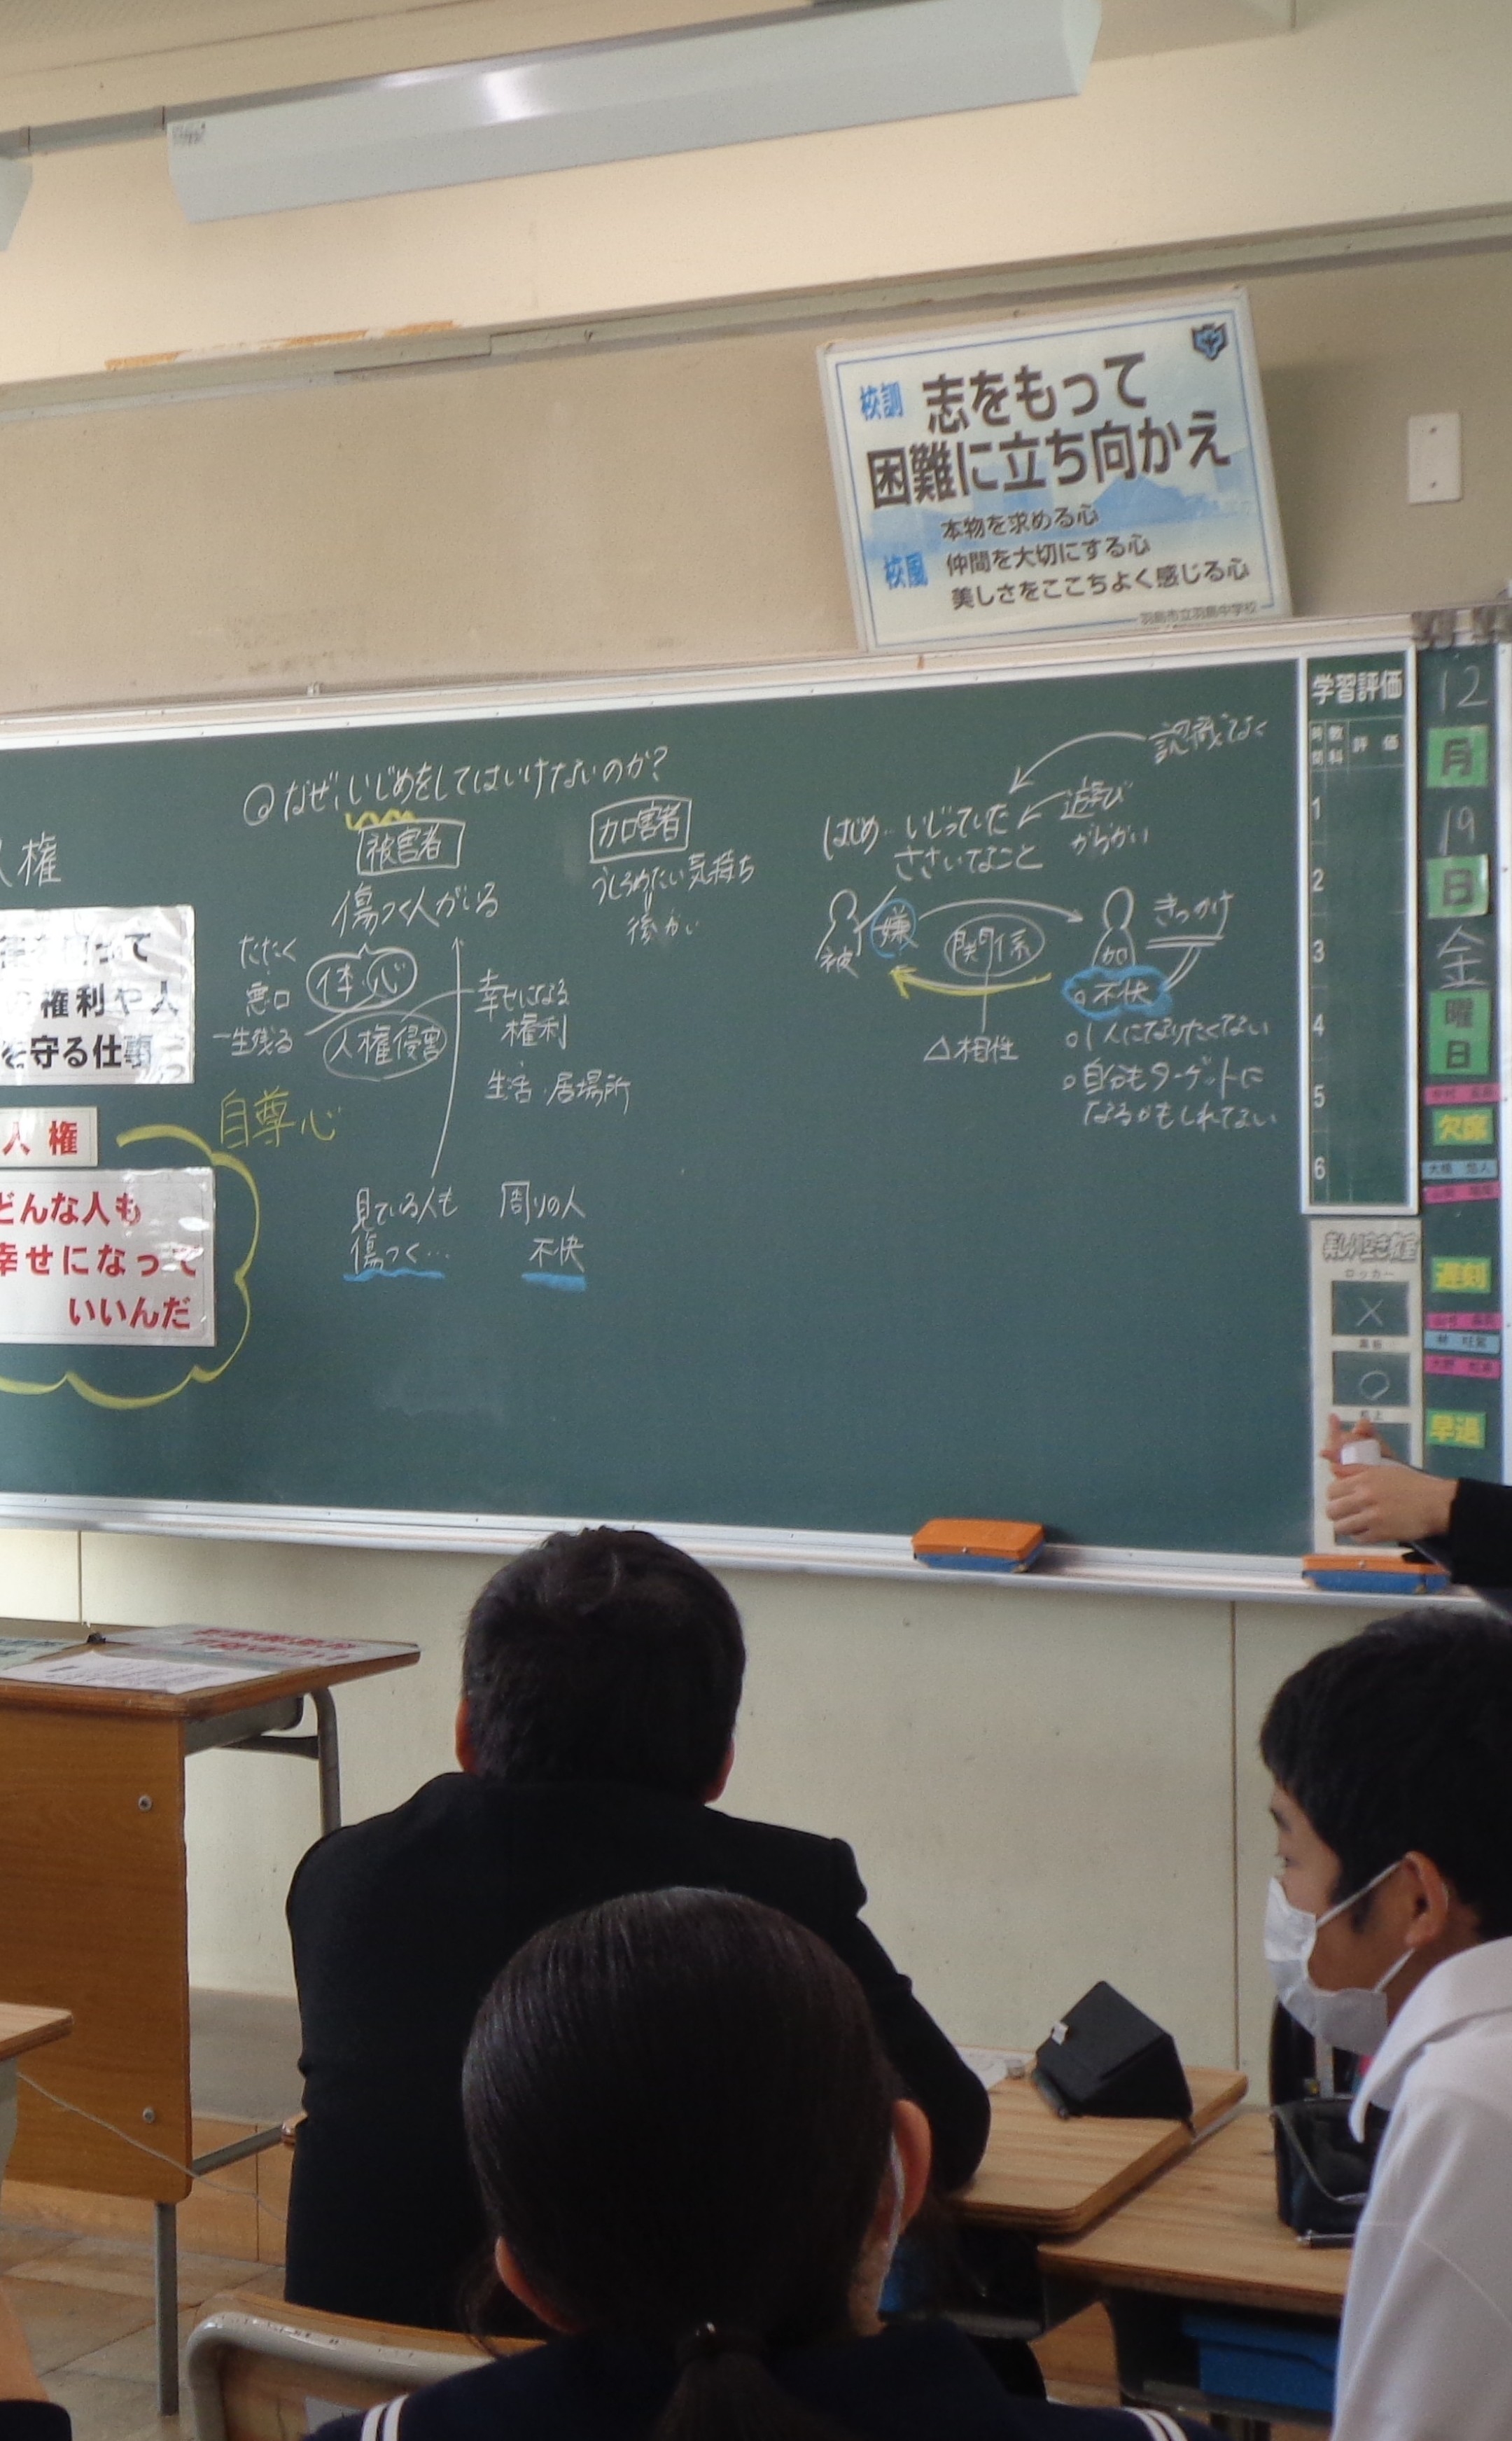 校訓
志をもって
困難に立ち向かえ
校風
本物を求める心
仲間を大切にする心
美しさをここちよく感じる心
羽島市立羽島中学校
人権
権利や人
を守る仕事
人権
どんな人も
幸せになって
いいんだ
◎なぜ、いじめをしてはいけないのか?
被害者
傷つく人がいる
たたく
悪口
一生残る
体・心
人権侵害
自尊心
幸せになる
権利
生活・居場所
見ている人も
傷つく…
周りの人
不快
加害者
うしろめたい気持ち
後かい
認識なく
はじめ…いじっていた
ささいなこと
遊び
からかい
被
嫌
関係
加
きっかけ
△相性
○不快
○1人になりたくない
○自分もターゲットに
なるかもしれない
学習評価
時間 教科 評価
1
2
3
4
5
6
12
月
19
日
金
曜
日
欠席
遅刻
早退
美しい空き教室
ロッカー
×
黒板
○
机上